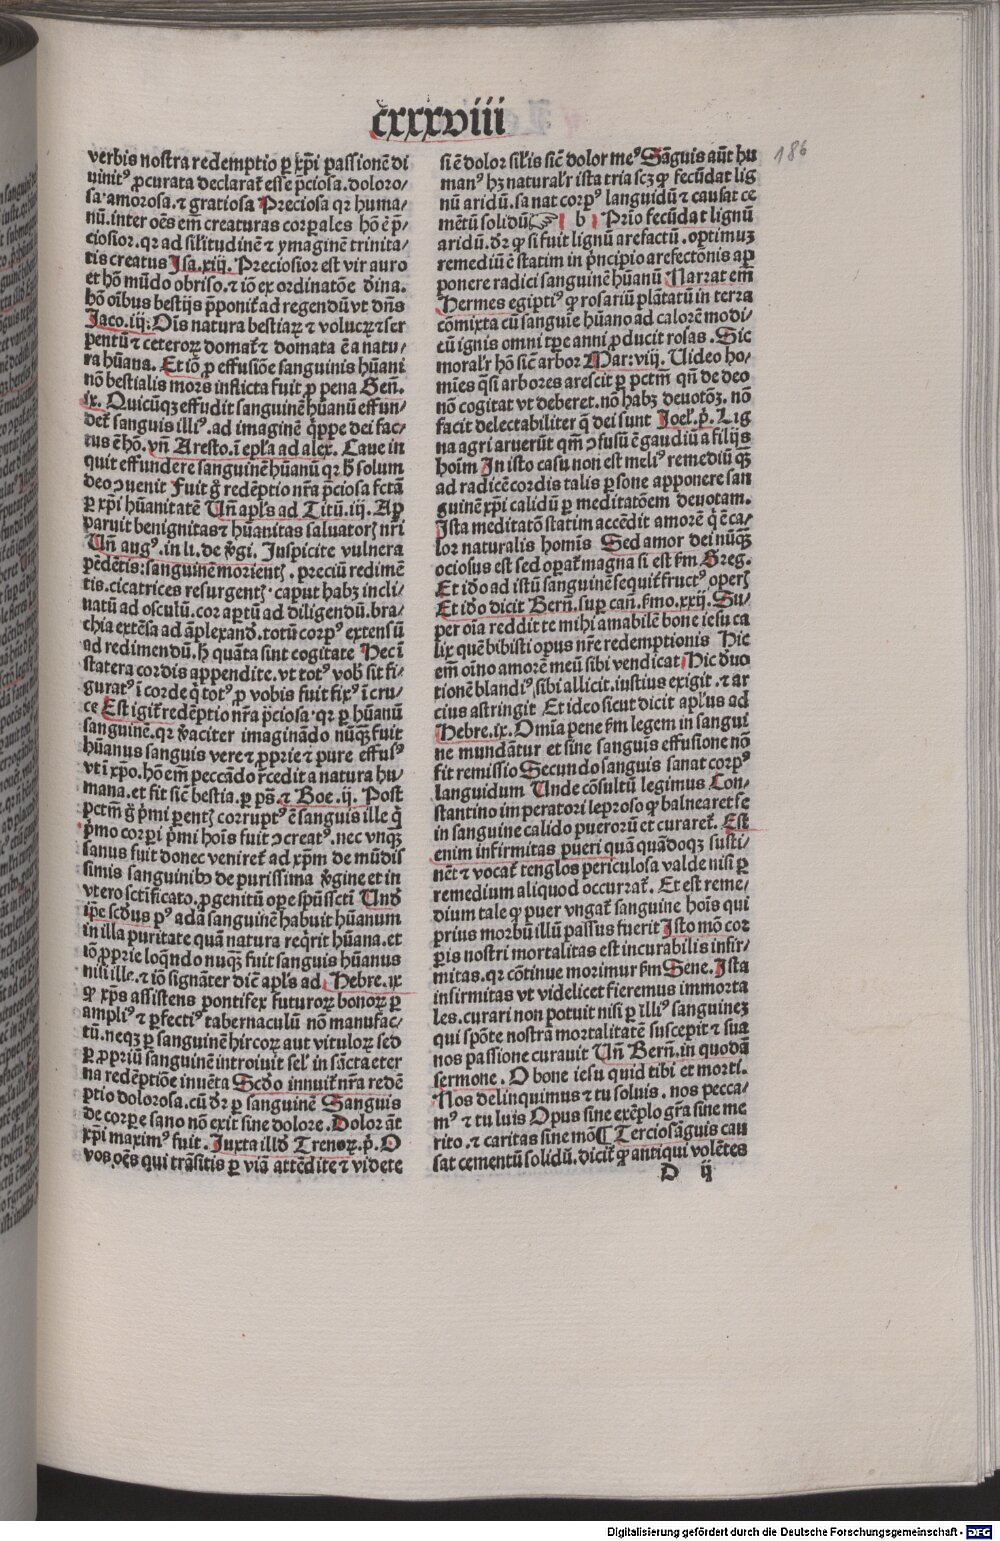 cxxxviii
186
verbis nostra redemptio ꝑ xp̄i passionē di
uinit⁹ ꝓcurata declarat̄ esse p̄ciosa. doloro/
sa. amorosa. ⁊ gratiosa Preciosa qꝛ huma/
nū. inter oēs em̄ creaturas corꝑales hō ē p̄/
ciosior. qꝛ ad sil̄itudinē ⁊ ymaginē trinita/
tis creatus Isa. xiij. Preciosior est vir auro
et hō mūdo obriso. ⁊ iō ex ordinatōe diuina.
hō oībus bestijs p̄ponit̄ ad regendū vt dn̄s
Jaco. iij: Oīs natura bestiaꝝ ⁊ volucꝝ ⁊ ser
pentū ⁊ ceteroꝝ domat̄ ⁊ domata ē a natu/
ra hūana. Et iō ꝓ effusiōe sanguinis hūani
nō bestialis mors inflicta fuit ꝓ pena Geñ.
ix. Quicūqꝫ effudit sanguinē hūanū effun/
det̄ sanguis illi⁹. ad imaginē q̄ppe dei fac/
tus ē hō. vn̄ Aresto. ī epl̄a ad alex. Caue in
quit effundere sanguinē hūanū qꝛ h̄ solum
deo ↄuenit Fuit g̊ redēptio nr̄a p̄ciosa fctā
ꝑ xp̄i hūanitatē Un̄ apl̄s ad Titū. iij. Ap
paruit benignitas ⁊ hūanitas saluatorꝭ nr̄i
Un̄ aug⁹. in li. de v̄gi. Inspicite vulnera
pēdētis: sanguinē morientꝭ. preciū redimē
tis. cicatrices resurgentꝭ. caput habꝫ incli/
natū ad osculū. cor aptū ad diligendū. bra/
chia extēsa ad āplexand̄. totū corp⁹ extensū
ad redimendū. h̄ quāta sint cogitate Hec ī
statera cordis appendite. vt tot⁹ vob̄ sit fi/
gurat⁹ ī corde q̄ tot⁹ ꝓ vobis fuit fix⁹ ī cru/
ce Est igit̄ redēptio nr̄a p̄ciosa. qꝛ ꝑ hūanū
sanguinē. qꝛ v̄aciter imaginādo nūqꝫ fuit
hūanus sanguis vere ⁊ ꝓprie ⁊ pure effus⁹
vt ī xp̄o. hō em̄ peccādo r̄cedit a natura hu/
mana. et fit sic̄ bestia. ꝑ ps̄. ⁊ Boe. ij. Post
pctm̄ g̊ p̄mi parentꝭ corrupt⁹ ē sanguis ille q̄
p̄mo corꝑi p̄mi hoīs fuit ↄcreat⁹. nec vnqꝫ
sanus fuit donec veniret̄ ad xp̄m de mūdis
simis sanguinibꝰ de purissima v̄gine et in
vtero sctīficato. ꝓgenitū ope sp̄ussctī Und̄
ip̄e scd̄us p⁹ adā sanguinē habuit hūanum
in illa puritate quā natura req̄rit hūana. et
iō ꝓprie loq̄ndo nuqꝫ fuit sanguis hūanus
nisi ille. ⁊ iō signāter dic̄ apl̄s ad. Hebre. ix
qꝙ xp̄s assistens pontifex futuroꝝ bonoꝝ ꝑ
ampli⁹ ⁊ ꝑfecti⁹ tabernaculū nō manufac/
tū. neqꝫ ꝑ sanguinē hircoꝝ aut vituloꝝ sed
ꝑ ꝓpriū sanguinē introiuit sel̄ in sācta eter
na redēptiōe inuēta Scd̄o innuit̄ nr̄a redē
ptio dolorosa. cū dr̄ ꝑ sanguinē Sanguis
de corꝑe sano nō exit sine dolore. Dolor āt
xp̄i maxim⁹ fuit. Juxta illd̄ Trenoꝝ. p̄. O
vos oēs qui trāsitis ꝑ viā attēdite ⁊ videte
si ē dolor sil̄is sic̄ dolor me⁹ Sāguis aūt hu
man⁹ hꝫ naturalr̄ ista tria scꝫ qꝙ fecūdat lig
nū aridū. sanat corp⁹ languidū ⁊ causat ce
mētū solidū ☞ b Prīo fecūdat lignū
aridū. dr̄ qꝙ si fuit lignū arefactū. optimuꝫ
remediū ē statim in p̄ncipio arefectōnis ap
ponere radici sanguinē hūanū Narrat em̄
Hermes egipti⁹ qꝙ rosariū plātatū in terra
cōmixta cū sanguīe hūano ad calorē modi/
cū ignis omni tꝑe anni ꝓducit rosas. Sic
moralr̄ hō sic̄ arbor Mar: viij. Uideo ho/
mīes q̄si arbores arescit ꝑ pctm̄ qn̄ de deo
nō cogitat vt deberet. nō habꝫ deuotōꝫ. nō
facit delectabiliter q̄ dei sunt Joel̄. p̄. Lig
na agri aruerūt qm̄ ↄfusū ē gaudiū a filijs
hoīm In isto casu non est meli⁹ remediū qꝫ
ad radicē cordis talis ꝑsone apponere san
guinē xp̄i calidū ꝑ meditatōem deuotam.
Ista meditatō statim accēdit amorē q̄ ē ca/
lor naturalis homīs Sed amor dei nūqꝫ
ociosus est sed oꝑat̄ magna si est fm̄ Greg.
Et id̄o ad istū sanguinē sequit̄ fruct⁹ operꝭ
Et id̄o dicit Berñ. suꝑ cañ. ſmo. xxij. Su/
per oīa reddit te mihi amabilē bone iesu ca
lix quē bibisti opus nr̄e redemptionis Hic
em̄ oīno amorē meū sibi vendicat Hic d̄uo
tionē blandi⁹ sibi allicit. iustius exigit. ⁊ ar
cius astringit Et ideo sicut dicit apl̄us ad
Hebre. ix. Omīa pene fm̄ legem in sangui
ne mundātur et sine sanguis effusione nō
fit remissio Secundo sanguis sanat corp⁹
languidum Unde cōsultū legimus Con/
stantino imperatori leproso qꝙ balnearet se
in sanguine calido puerorū et curaret̄. Est
enim infirmitas pueri quā quādoqꝫ susti/
nēt ⁊ vocat̄ tenglos periculosa valde nisi ꝑ
remedium aliquod occurrat̄. Et est reme/
dium tale qꝙ puer vngat̄ sanguine hoīs qui
prius morbū illū passus fuerit Isto mō cor
ꝑis nostri mortalitas est incurabilis infir/
mitas. qꝛ cōtinue morimur fm̄ Sene. Ista
infirmitas vt videlicet fieremus immorta
les. curari non potuit nisi ꝑ illi⁹ sanguineꝫ
qui spōte nostrā mortalitatē suscepit ⁊ sua
nos passione curauit Un̄ Berñ. in quodā
sermone. O bone iesu quid tibi et morti.
Nos delinquimus ⁊ tu soluis. nos pecca/
m⁹ ⁊ tu luis Opus sine exēplo gr̄a sine me
rito. ⁊ caritas sine mō ¶ Tercio sāguis cau
sat cementū solidū. dicit̄ qꝙ antiqui volētes
D ij
Digitalisierung gefördert durch die Deutsche Forschungsgemeinschaft - DFG